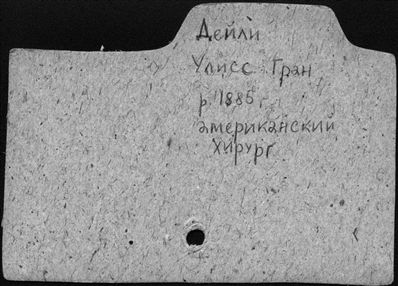 Дейли
Улисс Гран
р. 1885 г.
американский
хирург